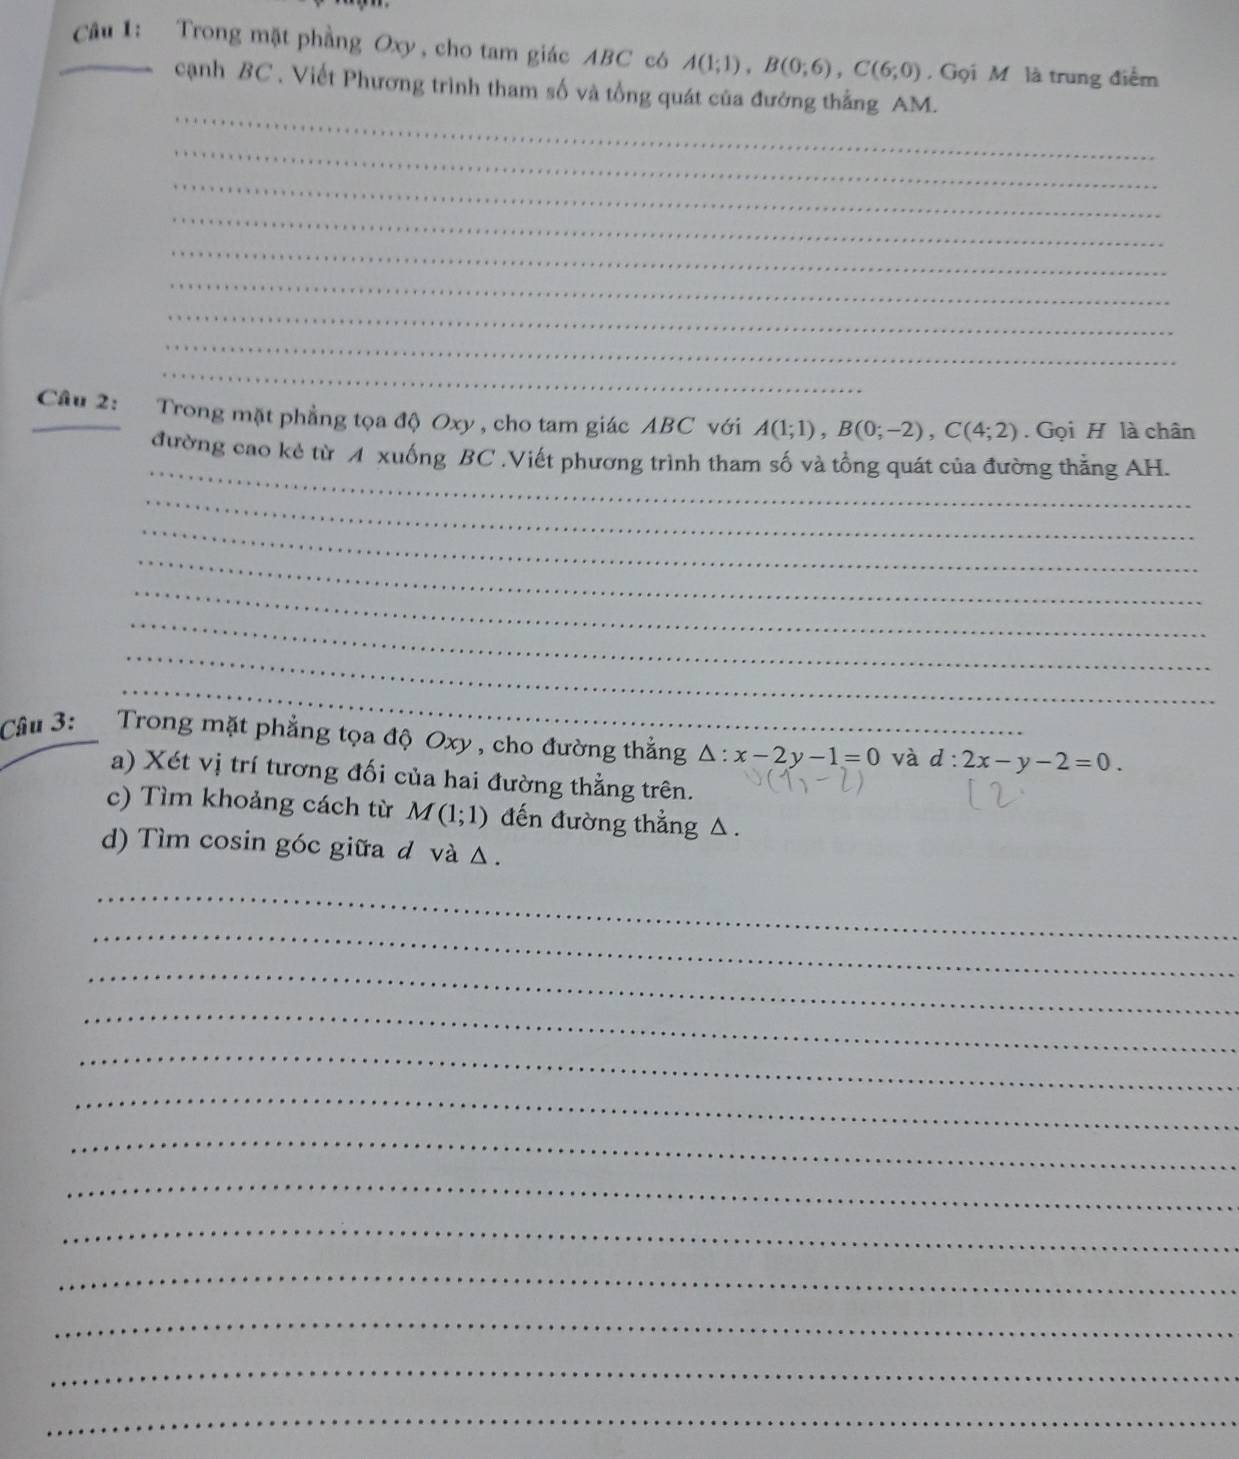 Câu 1: Trong mặt phẳng Oxy, cho tam giác ABC có A(1;1), B(0;6), C(6;0). Gọi M là trung điểm
cạnh BC. Viết Phương trình tham số và tổng quát của đường thẳng AM.
Câu 2: Trong mặt phẳng tọa độ Oxy, cho tam giác ABC với A(1;1), B(0;-2), C(4;2). Gọi H là chân
đường cao kẻ từ A xuống BC.Viết phương trình tham số và tổng quát của đường thẳng AH.
Câu 3: Trong mặt phẳng tọa độ Oxy, cho đường thẳng Δ: x-2y-1=0 và d:2x-y-2=0.
a) Xét vị trí tương đối của hai đường thẳng trên.
(1,-2) [2
c) Tìm khoảng cách từ M(1;1) đến đường thẳng Δ.
d) Tìm cosin góc giữa d và Δ.